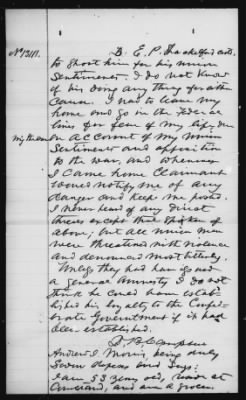 No 13111.
D. E. P.
to shoot him for his union
sentiments. I do not know
of his doing any thing for either
cause. I had to leave my
home and go in the Federal
lines for fear of my life, on
my
an account of my Union
sentiments and opposition
to the war, and whenever
I came home Claimant
would notify me of any
danger and keep me posted.
I never heard of any direct
threats except that spoken of
above; but all union men
were threatened with violence
and denounced most bitterly.
Unless they had
a general Amnesty I do not
think he could have estab-
lished his loyalty to the Confed-
erate Government if it had
been established.
D. B. Champion
Andrew J. Morris, being duly
sworn deposes and says:
I am 53 years old, reside at
and am a grocer.